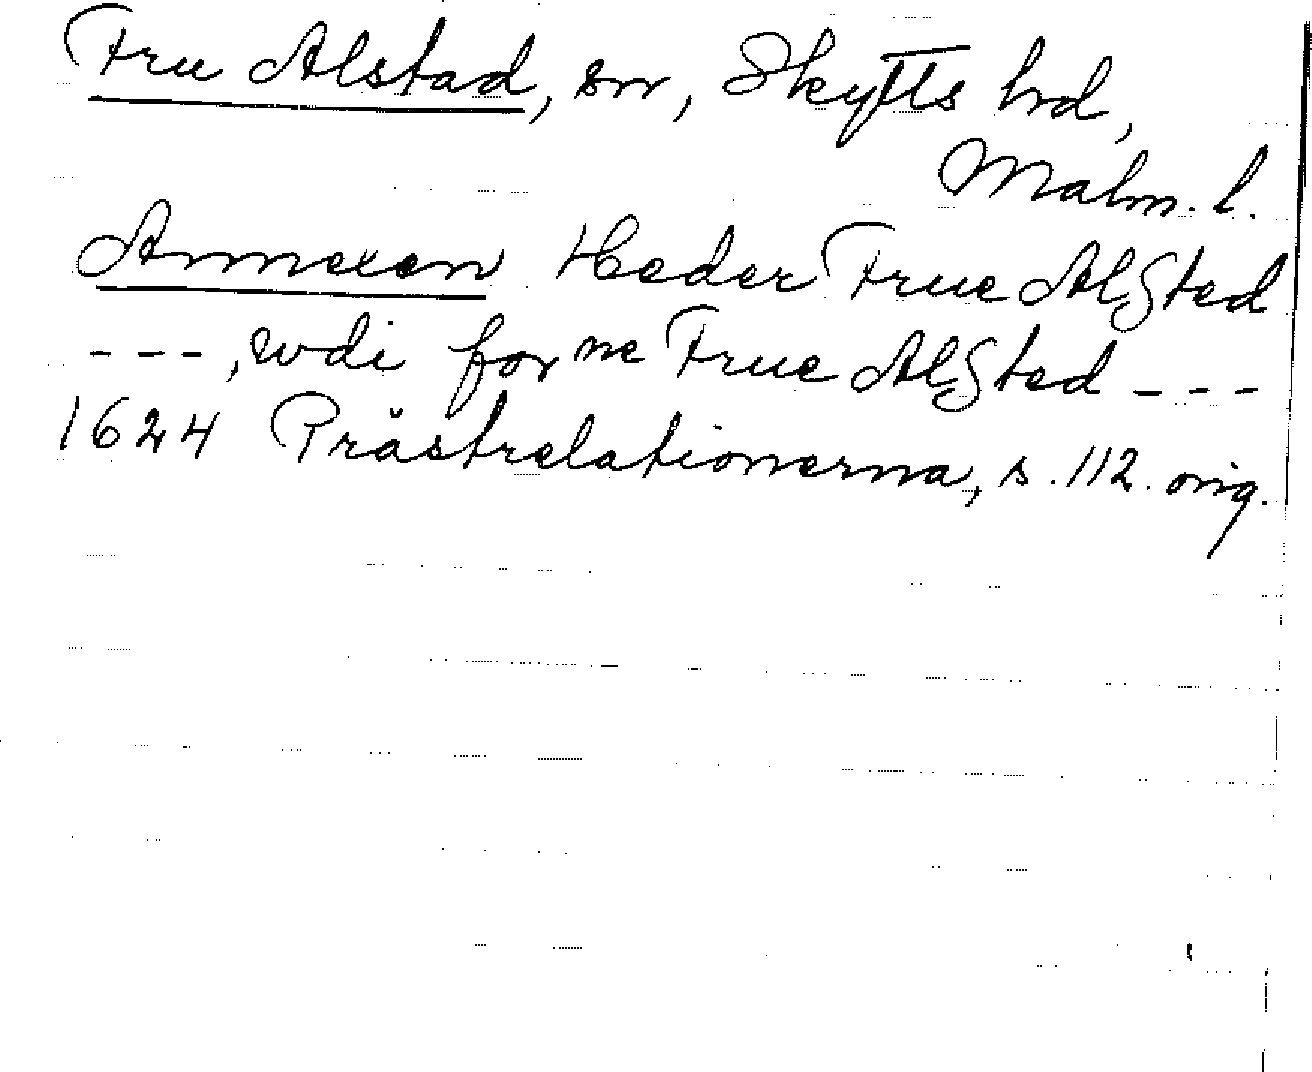 Fru Alstad, sn, Skytts hd,
Malm. l.
Annexen Heder Frue Alsted
---, wdi for ne Frue Alsted ---
1624 Prästrelationerna, s. 112. orig.